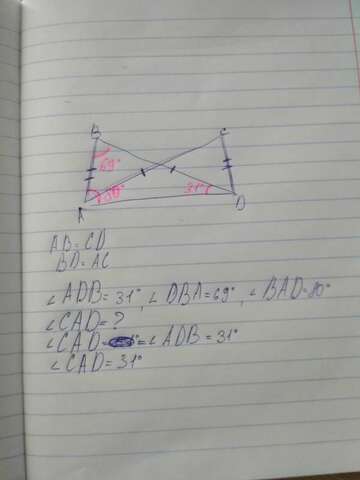 B C
69°
80° 31°
A D
AB=CD
BD=AC
∠ADB=31°, ∠DBA=69°, ∠BAD=80°
∠CAD=?
∠CAD= =∠ADB=31°
∠CAD=31°